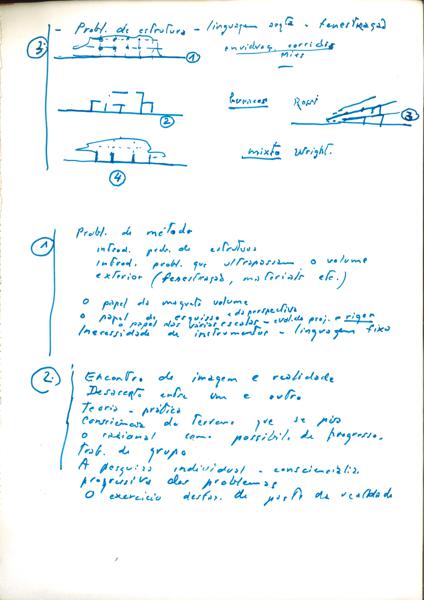 - Probl. de estrutura - linguagem arqta - fenestração
3:
envidraç. corrido
Mies
1
2
buracos Rossi
3
mixto Wright.
4
1
Probl. de método
introd. probl. de estrutura
introd. probl. que ultrapassam o volume
exterior (fenestração, materiais etc.)
o papel da maquete volume
o papel do esquisso e da perspectiva
o papel das várias escalas - evol. de proj. e rigor
Necessidade de instrumentos - linguagem fixa
2:
Encontro de imagem e realidade
Desacerto entre um e outro
Teoria - prática
Consciência do terreno que se pisa
o racional como possibil. de progresso.
trab. de grupo
A pesquisa individual - consciencializ.
progressiva dos problemas
O exercício de parte da realidade